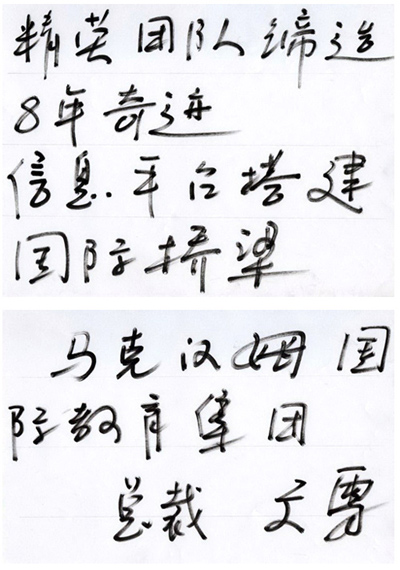 精英团队缔造
8年奇迹
信息平台搭建
国际桥梁
马克汉姆国
际教育集团
总裁 文